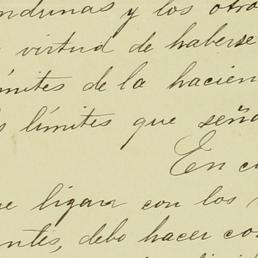 ndunas y los otro
virtud de haberse
ímites de la hacien
s límites que seña
En c
e ligara con los
ntes, debo hacer co